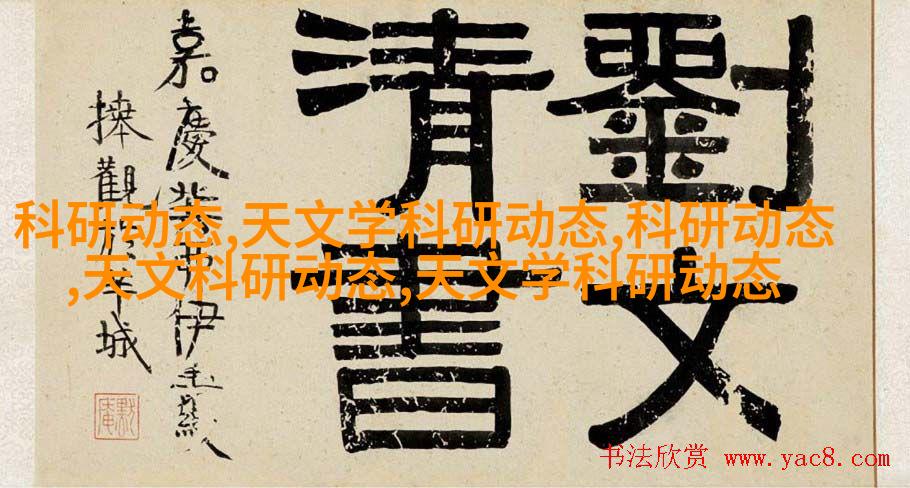 劉文
清書
嘉慶癸伊秉綬
捧觀羊城
默庵
科研动态,天文学科研动态,科研动态
,天文科研动态,天文学科研动态
书法欣赏 www.yac8.com